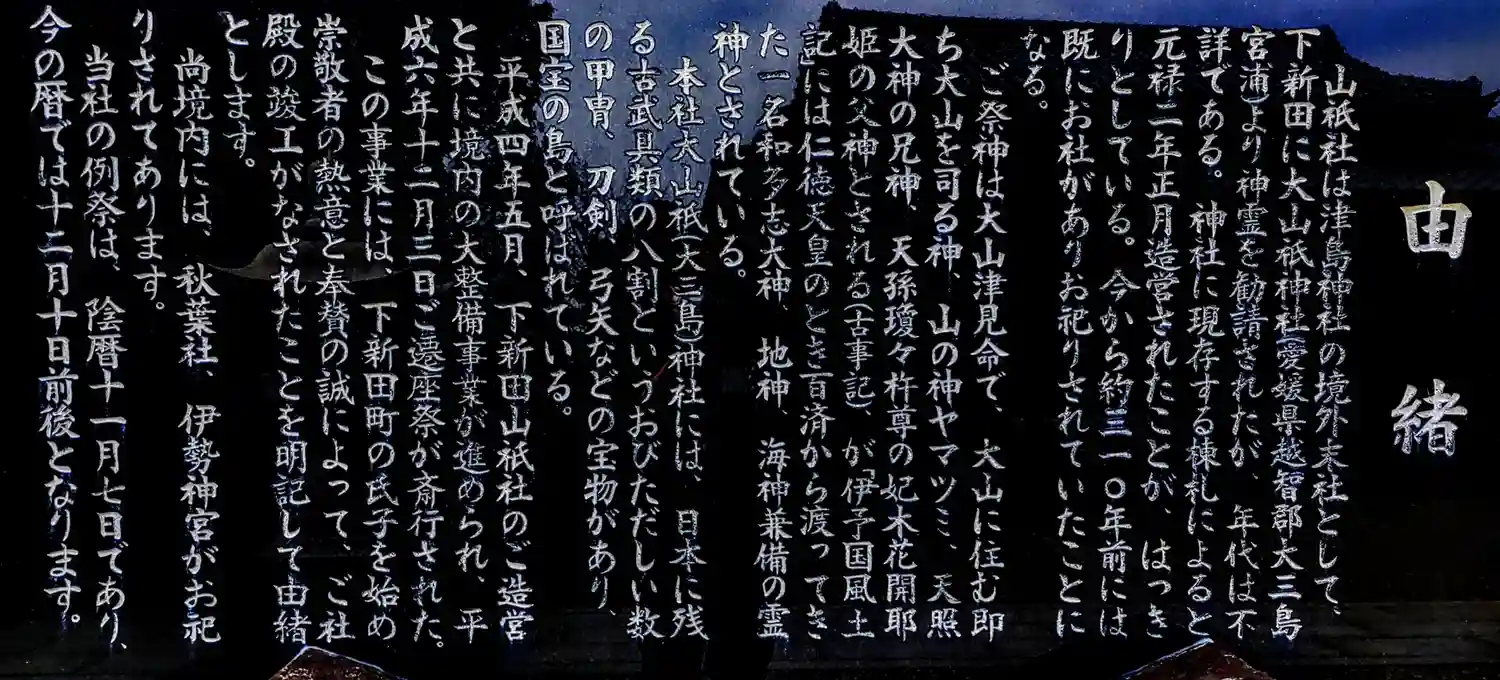 由緒
山祇社は津島神社の境外末社として、
下新田に大山祇神社(愛媛県越智郡大三島
宮浦)より神霊を勧請されたが、年代は不
詳である。神社に現存する棟札によると
元禄二年正月造営されたことが、はっき
りとしている。今から約三一〇年前には
既にお社がありお祀りされていたことに
なる。
ご祭神は大山津見命で、大山に住む即
ち大山を司る神、山の神ヤマツミ、天照
大神の兄神、天孫瓊々杵尊の妃木花開耶
姫の父神とされる(古事記)、が「伊予国風土
記」には仁徳天皇のとき百済から渡ってき
た一名和多志大神、地神、海神兼備の霊
神とされている。
本社大山祇(大三島)神社には、日本に残
る古武具類の八割というおびただしい数
の甲冑、刀剣、弓矢などの宝物があり、
国宝の島と呼ばれている。
平成四年五月、下新田山祇社のご造営
と共に境内の大整備事業が進められ、平
成六年十二月三日ご遷座祭が斎行された。
この事業には、下新田町の氏子を始め
崇敬者の熱意と奉賛の誠によって、ご社
殿の竣工がなされたことを明記して由緒
とします。
尚境内には、秋葉社、伊勢神宮がお祀
りされてあります。
当社の例祭は、陰暦十一月七日であり、
今の暦では十二月十日前後となります。